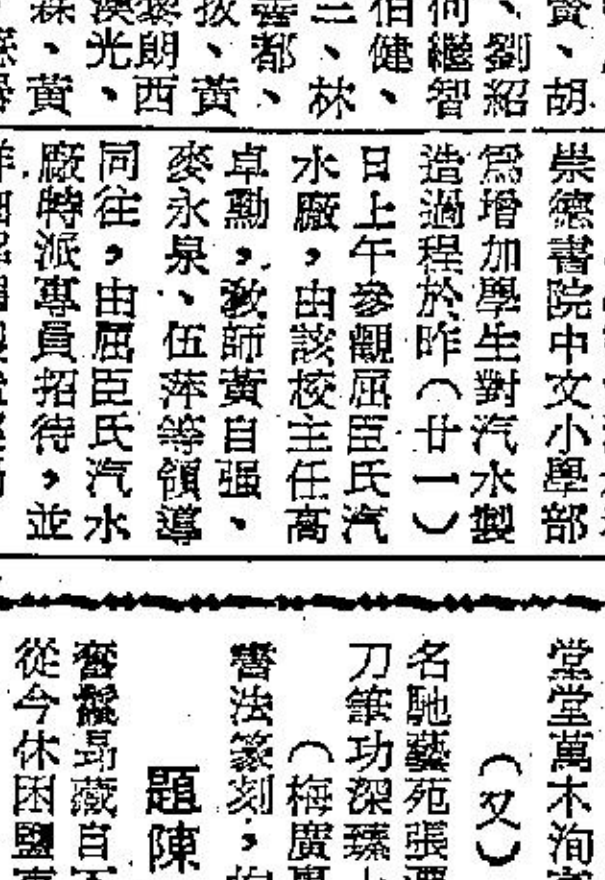 、胡
黃
、劉紹
何繼智
伯健、
三、林
善都、
、黃
黎朗西
漢光、
森、黃
崇德書院中文小學部
爲增加學生對汽水製
造過程於昨（廿一）
日上午參觀屈臣氏汽
水廠，由該校主任高
卓勳，敎師黃自强、
麥永泉、伍萍等領導
同往，由屈臣氏汽水
廠特派專員招待，並
堂堂萬木洵
（又）
名馳藝苑張
刀筆功深臻
（梅廣
書法篆刻，
題陳
奮鬣昂藏自
從今休困鹽